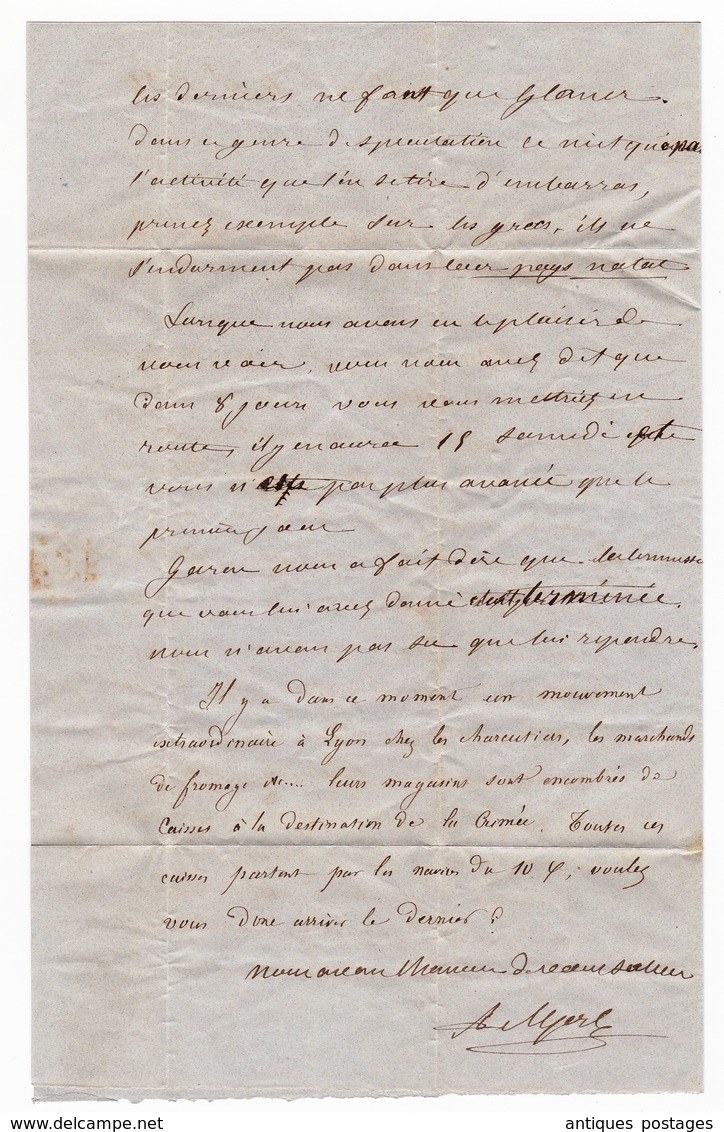 les derniers ne font que glaner.
dans ce genre de spéculation ce n'est qu'a par
l'activité que l'on se tire d'embarras,
prenez exemple sur les grecs, ils ne
s'endorment pas dans leur pays natal
Lorsque nous avons eu le plaisir de
vous voir, vous nous avez dit que
dans 8 jours vous vous mettriez en
route, il y en aura 15 samedi et
vous n'êtes pas plus avancé que le
premier jour
nous a fait dire que la commission
que vous lui avez donné était terminée,
nous n'avons pas su que lui repondre.
Il y a dans ce moment un mouvement
extraordinaire à Lyon chez les charcutiers, les marchands
de fromage &c.... leurs magasins sont encombrés de
Caisses à la destination de la Crimée. Toutes ces
caisses partent par les navires du 10 ; voulez
vous donc arriver le dernier ?
Nous avons l'honneur de vous saluer
antiques postages